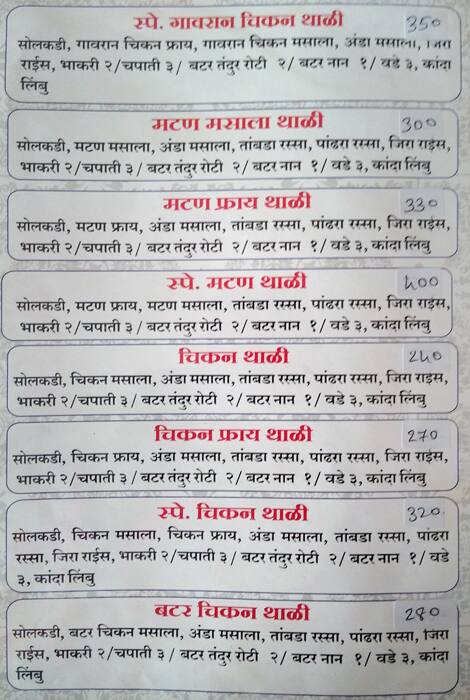 स्पे. गावरान चिकन थाळी 350
सोलकडी, गावरान चिकन फ्राय, गावरान चिकन मसाला, अंडा मसाला, जिरा
राईस, भाकरी २/चपाती ३/ बटर तंदुर रोटी २/ बटर नान १/ वडे ३, कांदा
लिंबु
मटण मसाला थाळी 300
सोलकडी, मटण मसाला, अंडा मसाला, तांबडा रस्सा, पांढरा रस्सा, जिरा राईस,
भाकरी २/चपाती ३/ बटर तंदुर रोटी २/ बटर नान १/ वडे ३, कांदा लिंबु
मटण फ्राय थाळी 330
सोलकडी, मटण फ्राय, अंडा मसाला, तांबडा रस्सा, पांढरा रस्सा, जिरा राईस,
भाकरी २/चपाती ३/ बटर तंदुर रोटी २/ बटर नान १/ वडे ३, कांदा लिंबु
स्पे. मटण थाळी 400
सोलकडी, मटण फ्राय, मटण मसाला, तांबडा रस्सा, पांढरा रस्सा, जिरा राईस,
भाकरी २/चपाती ३/ बटर तंदुर रोटी २/ बटर नान १/ वडे ३, कांदा लिंबु
चिकन थाळी 240
सोलकडी, चिकन मसाला, अंडा मसाला, तांबडा रस्सा, पांढरा रस्सा, जिरा राईस,
भाकरी २/चपाती ३/ बटर तंदुर रोटी २/ बटर नान १/ वडे ३, कांदा लिंबु
चिकन फ्राय थाळी 270
सोलकडी, चिकन फ्राय, अंडा मसाला, तांबडा रस्सा, पांढरा रस्सा, जिरा राईस,
भाकरी २/चपाती ३/ बटर तंदुर रोटी २/ बटर नान १/ वडे ३, कांदा लिंबु
स्पे. चिकन थाळी 320
सोलकडी, चिकन मसाला, चिकन फ्राय, अंडा मसाला, तांबडा रस्सा, पांढरा
रस्सा, जिरा राईस, भाकरी २/चपाती ३/ बटर तंदुर रोटी २/ बटर नान १/ वडे
३, कांदा लिंबु
बटर चिकन थाळी 280
सोलकडी, बटर चिकन मसाला, अंडा मसाला, तांबडा रस्सा, पांढरा रस्सा, जिरा
राईस, भाकरी २/चपाती ३/ बटर तंदुर रोटी २/ बटर नान १/ वडे ३, कांदा
लिंबु